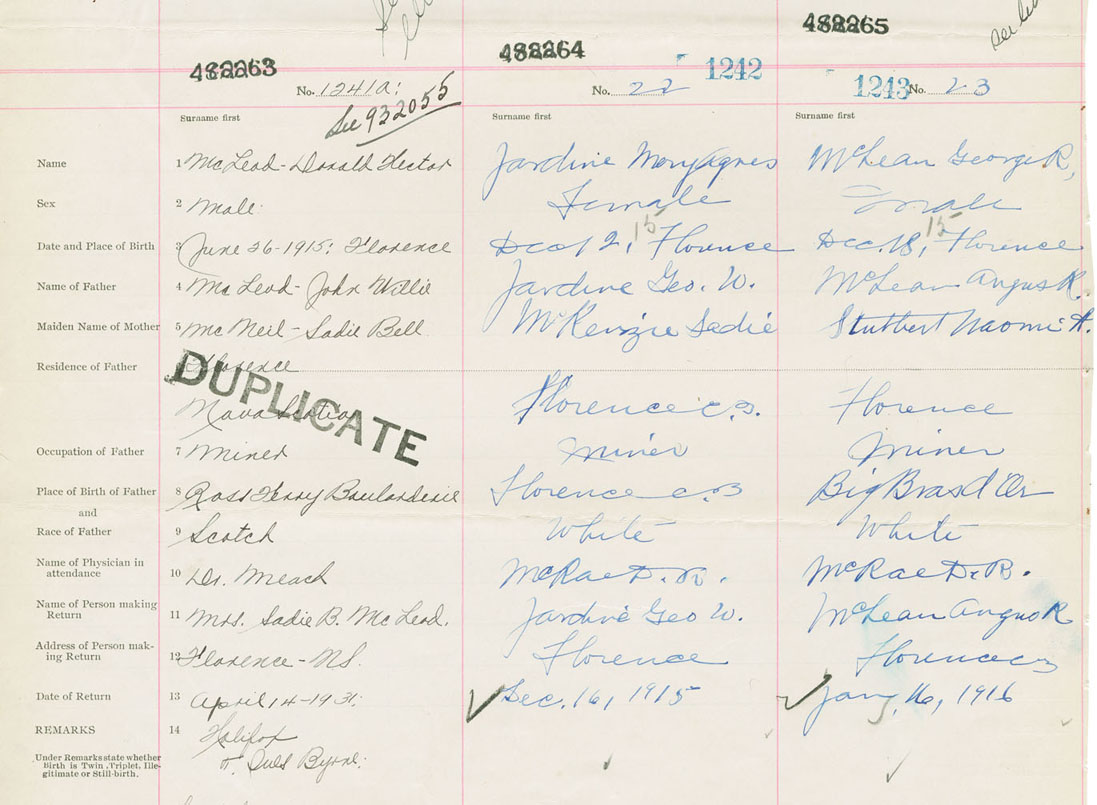 482263
482264
482265
No. 1241a:
No. 22 1242
1243 No. 23
See 932055
Surname first
Surname first
Surname first
Name 1 McLeod - Donald Hector Jardine Mary Agnes McLean George R,
Sex 2 Male. Female Male
15 15
Date and Place of Birth 3 June 26-1915; Florence Dec 12, Florence Dec. 18, Florence
Name of Father 4 McLeod - John Willie Jardine Geo. W. McLean Angus R.
Maiden Name of Mother 5 McNeil - Sadie Bell McKenzie Sadie Stubbert Naomi A.
Residence of Father Florence
DUPLICATE
Nova Scotia Florence C.B. Florence
Occupation of Father 7 Miner Miner Miner
Place of Birth of Father 8 Ross Ferry Boulardarie Florence C B Big Bras d'Or
and
Race of Father 9 Scotch White White
Name of Physician in attendance 10 Dr. Meach McRae D. R. McRae D. R.
Name of Person making Return 11 Mrs. Sadie B. McLeod. Jardine Geo W. McLean Angus R
Address of Person making Return 12 Florence - N.S. Florence Florence CB
Date of Return 13 April 14-1931: Dec. 16, 1915 Jany 16, 1916
REMARKS 14 Halifax
Byrne.
Under Remarks state whether
Birth is Twin, Triplet, Ille-
gitimate or Still-birth.